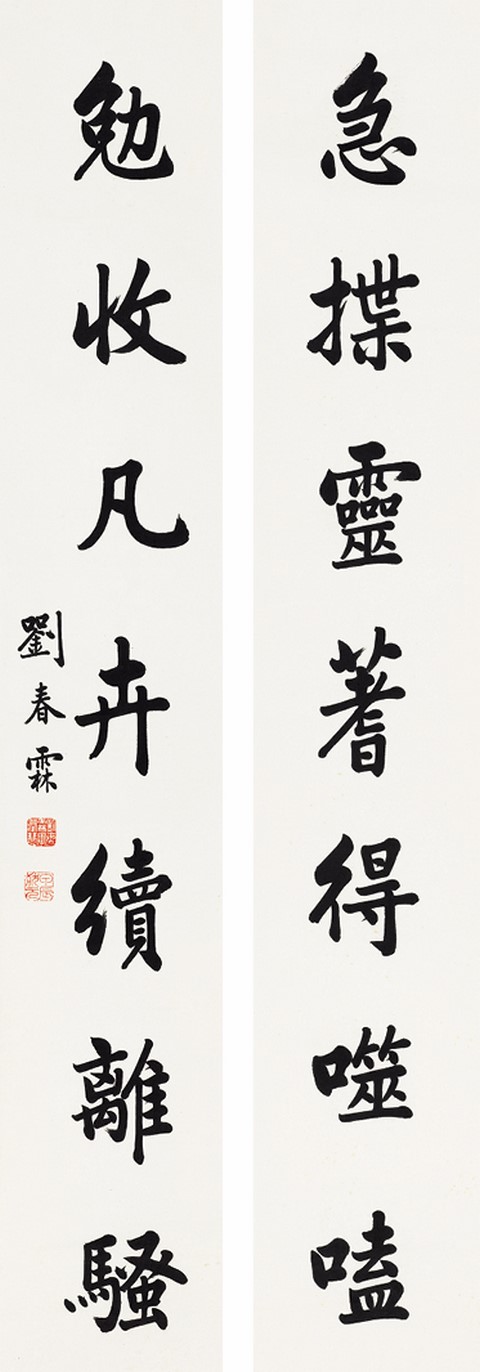 急揲靈蓍得噬嗑
勉收凡卉續離騷
劉春霖